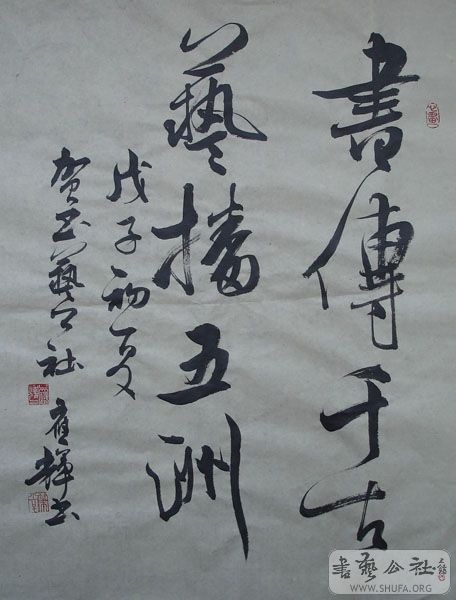 書傳千古
藝播五洲
戊子初夏
贺书藝公社
輝书
書藝公社
WWW.SHUFA.ORG